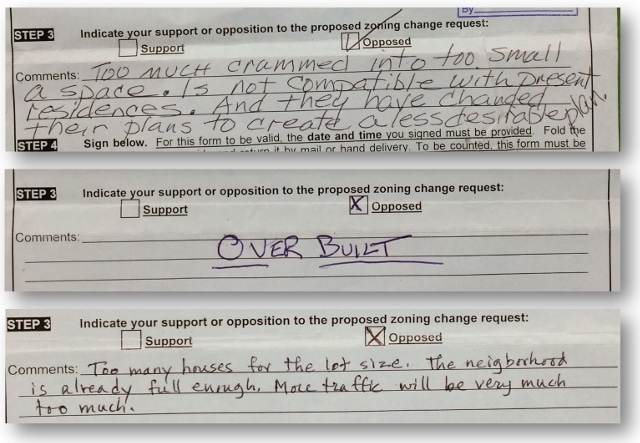 By
STEP 3 Indicate your support or opposition to the proposed zoning change request:
Support Opposed
Comments: Too much crammed into too small
a space. Is not compatible with present
residences. And they have changed
their plans to create a less desirable plan.
STEP 4 Sign below. For this form to be valid, the date and time you signed must be provided. Fold the
return it by mail or hand delivery. To be counted, this form must be
STEP 3 Indicate your support or opposition to the proposed zoning change request:
Support X Opposed
Comments:
OVER BUILT
STEP 3 Indicate your support or opposition to the proposed zoning change request:
Support X Opposed
Comments: Too many houses for the lot size. The neigborhood
is already full enough. More traffic will be very much
too much.